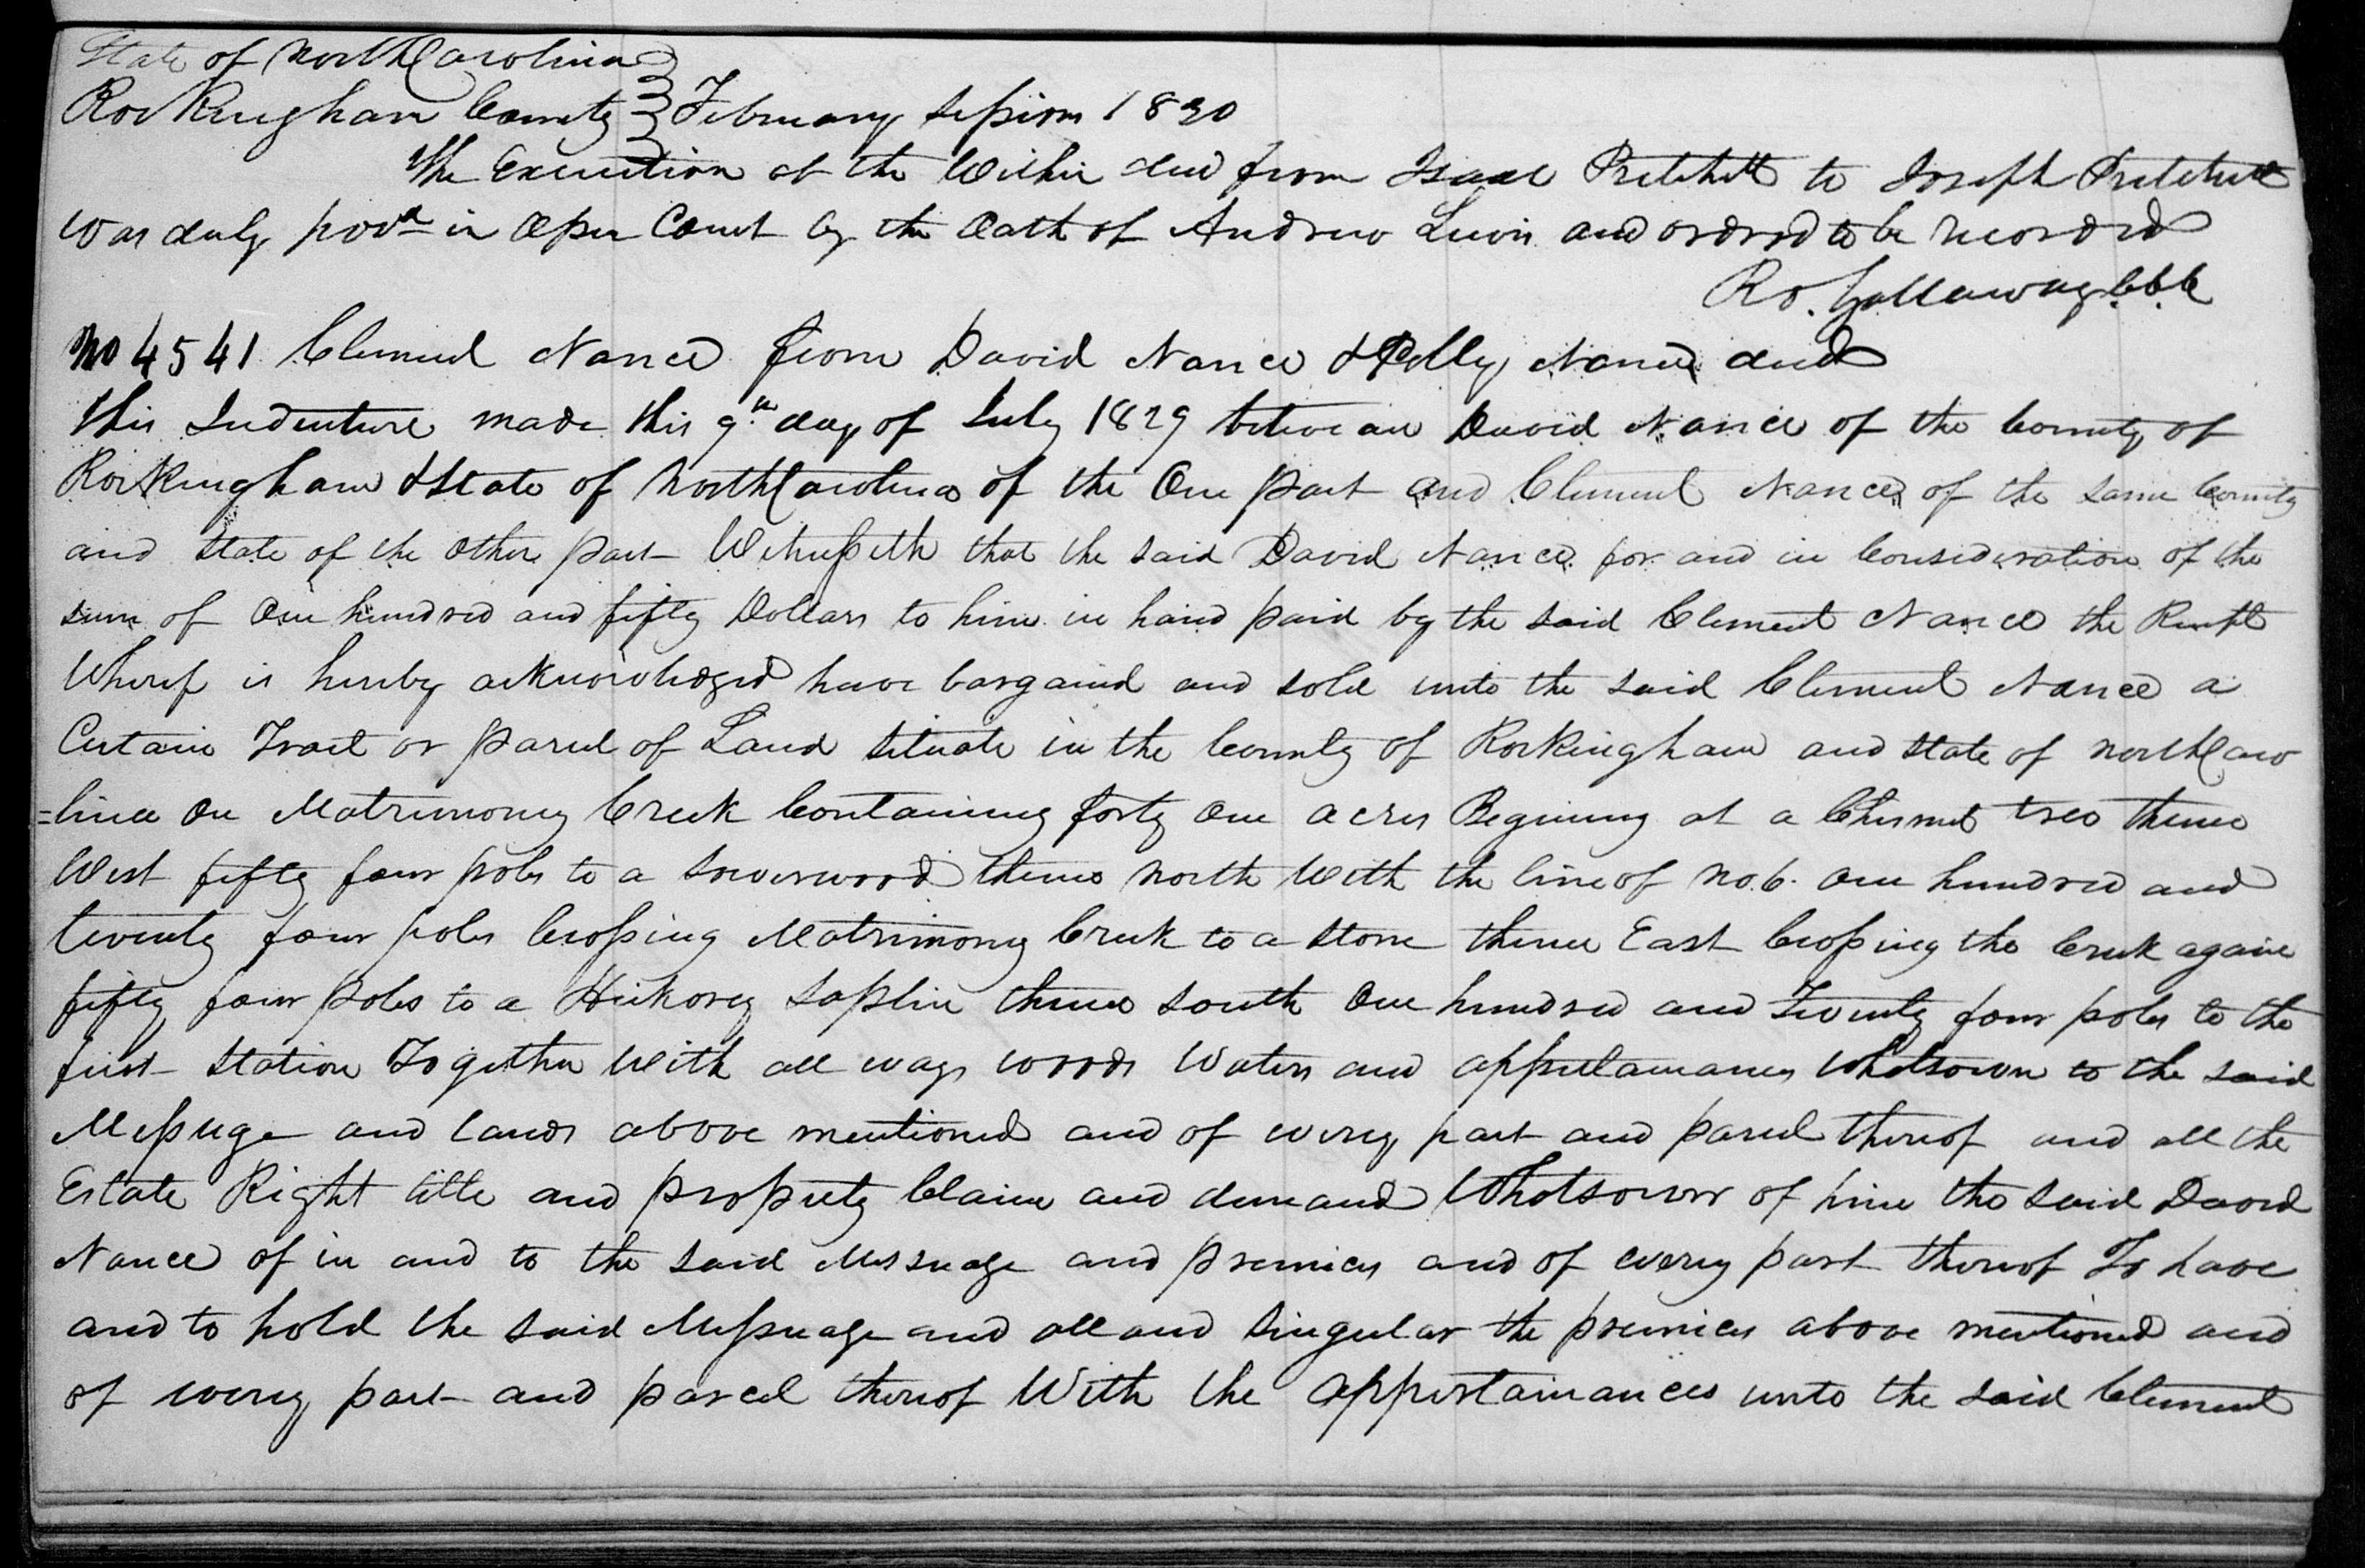 State of North Carolina
Rockingham County } February session 1830
The Execution of the Within deed from Isaac Pritchett to Joseph Pritchett
Was duly provd in Open Court by the Oath of Andrew Lewis and ordered to be recorded
Ro. Gallaway C.C.C
No 4541 Clement Nance from David Nance & Polly Nance deed
This Indenture made this 9th day of July 1829 between David Nance of the County of
Rockingham & State of North Carolina of the One part and Clement Nance of the same County
and State of the other part Witnesseth that the said David Nance for and in Consideration of the
sum of One hundred and fifty Dollars to him in hand paid by the said Clement Nance the Receipt
Whereof is hereby acknowledged have bargaind and sold unto the said Clement Nance a
Certain Tract or parcel of Land situate in the County of Rockingham and State of North Caro
=lina On Matrimony Creek Containing forty One acres Begining at a Chesnut tree thence
West fifty four poles to a sowerwood thence North With the line of No. 6. One hundred and
twenty four poles Crossing Matrimony Creek to a Stone thence East Crossing the Creek again
fifty four poles to a Hickory Saplin thence South One hundred and Twenty four poles to the
first Station Together With all ways woods Waters and appurtainances Whatsoever to the said
Messuge and lands above mentioned and of every part and parcel thereof and all the
Estate Right title and property Claim and demand Whatsoever of him the said David
Nance of in and to the said Messuage and premices and of every part thereof To have
and to hold the said Messuage and all and Singular the premices above mentioned and
of every part and parcel thereof With the appertainances unto the said Clement